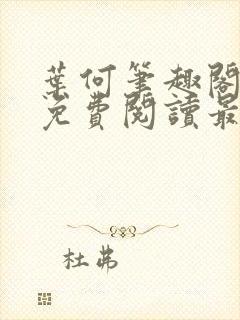 葉何筆趣閣
免費閱讀最
杜弗